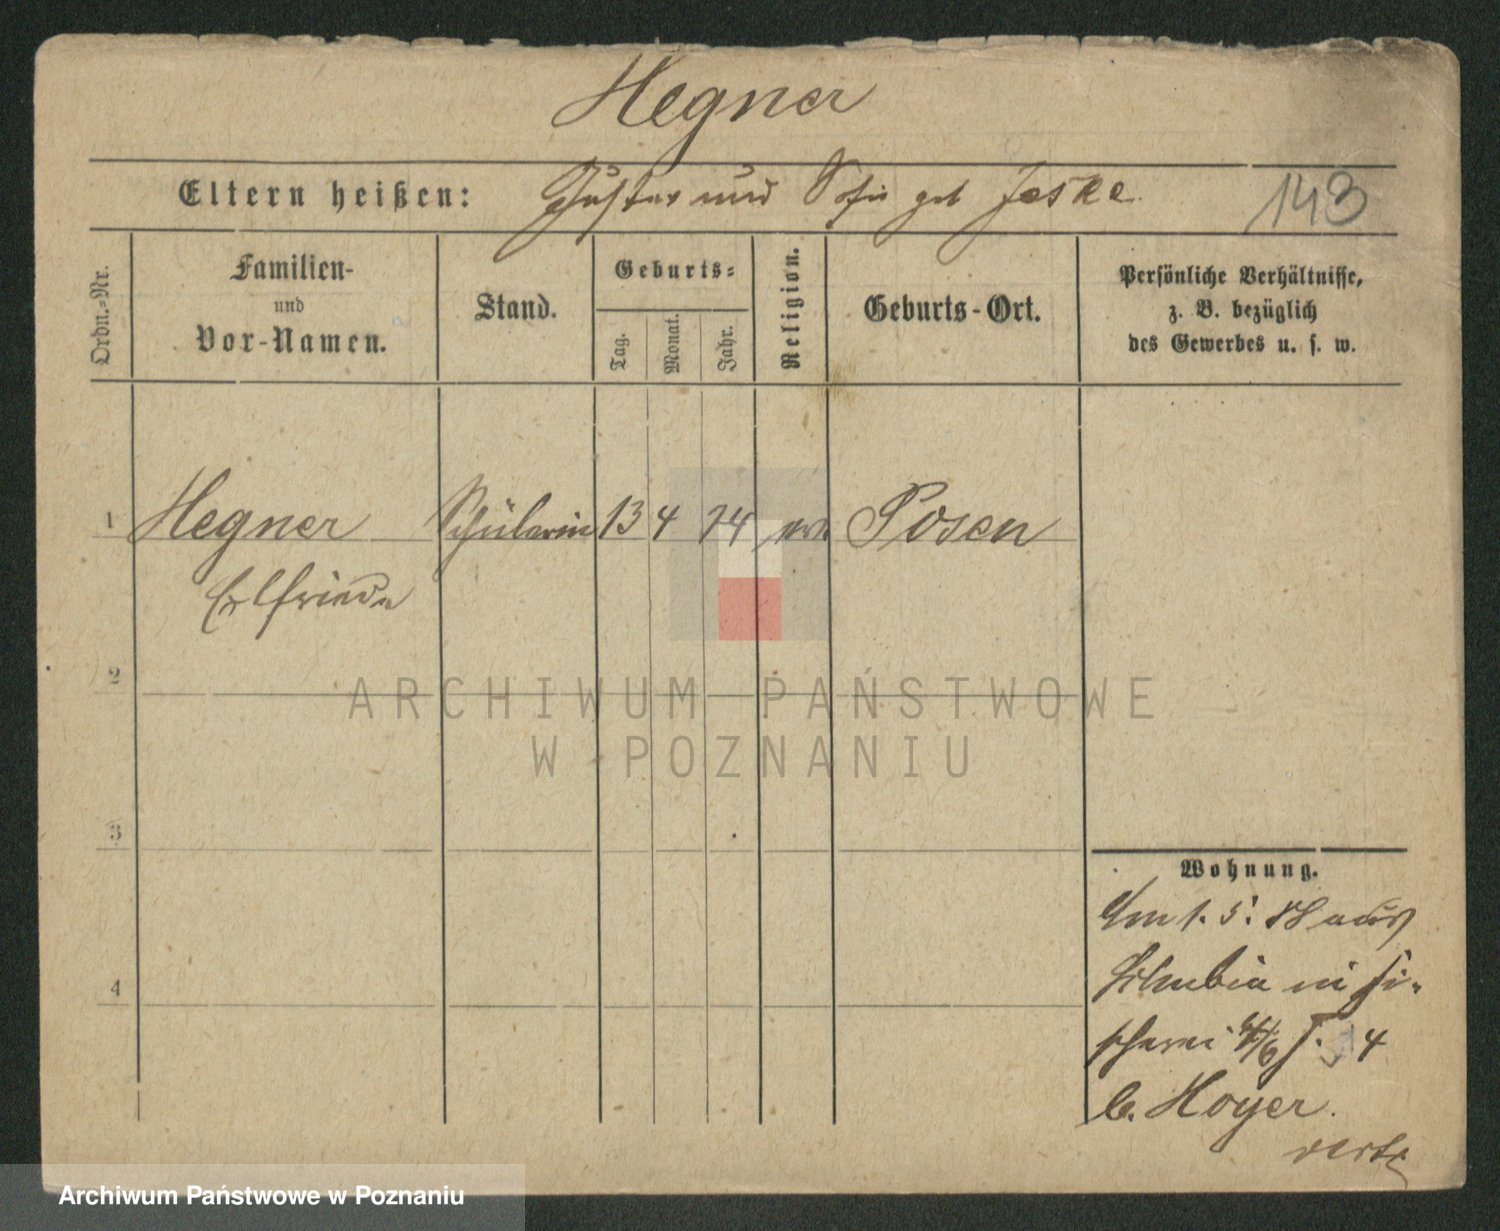 Hegner
Eltern heißen: Gustav und Sofie geb Jeske.
143
Ordn.-Nr.
Familien-
und
Vor-Namen.
Stand.
Geburts-
Tag.
Monat.
Jahr.
Religion.
Geburts-Ort.
Persönliche Verhältnisse,
z. B. bezüglich
des Gewerbes u. s. w.
1 Hegner Schülerin 13 4 74 ev. Posen
Elfriede
2
ARCHIWUM PAŃSTWOWE
W POZNANIU
3
4
Wohnung.
Am 1. 5. 88 aus
in Fi-
scherei 4/6 4
b. Hoyer.
verte
Archiwum Państwowe w Poznaniu